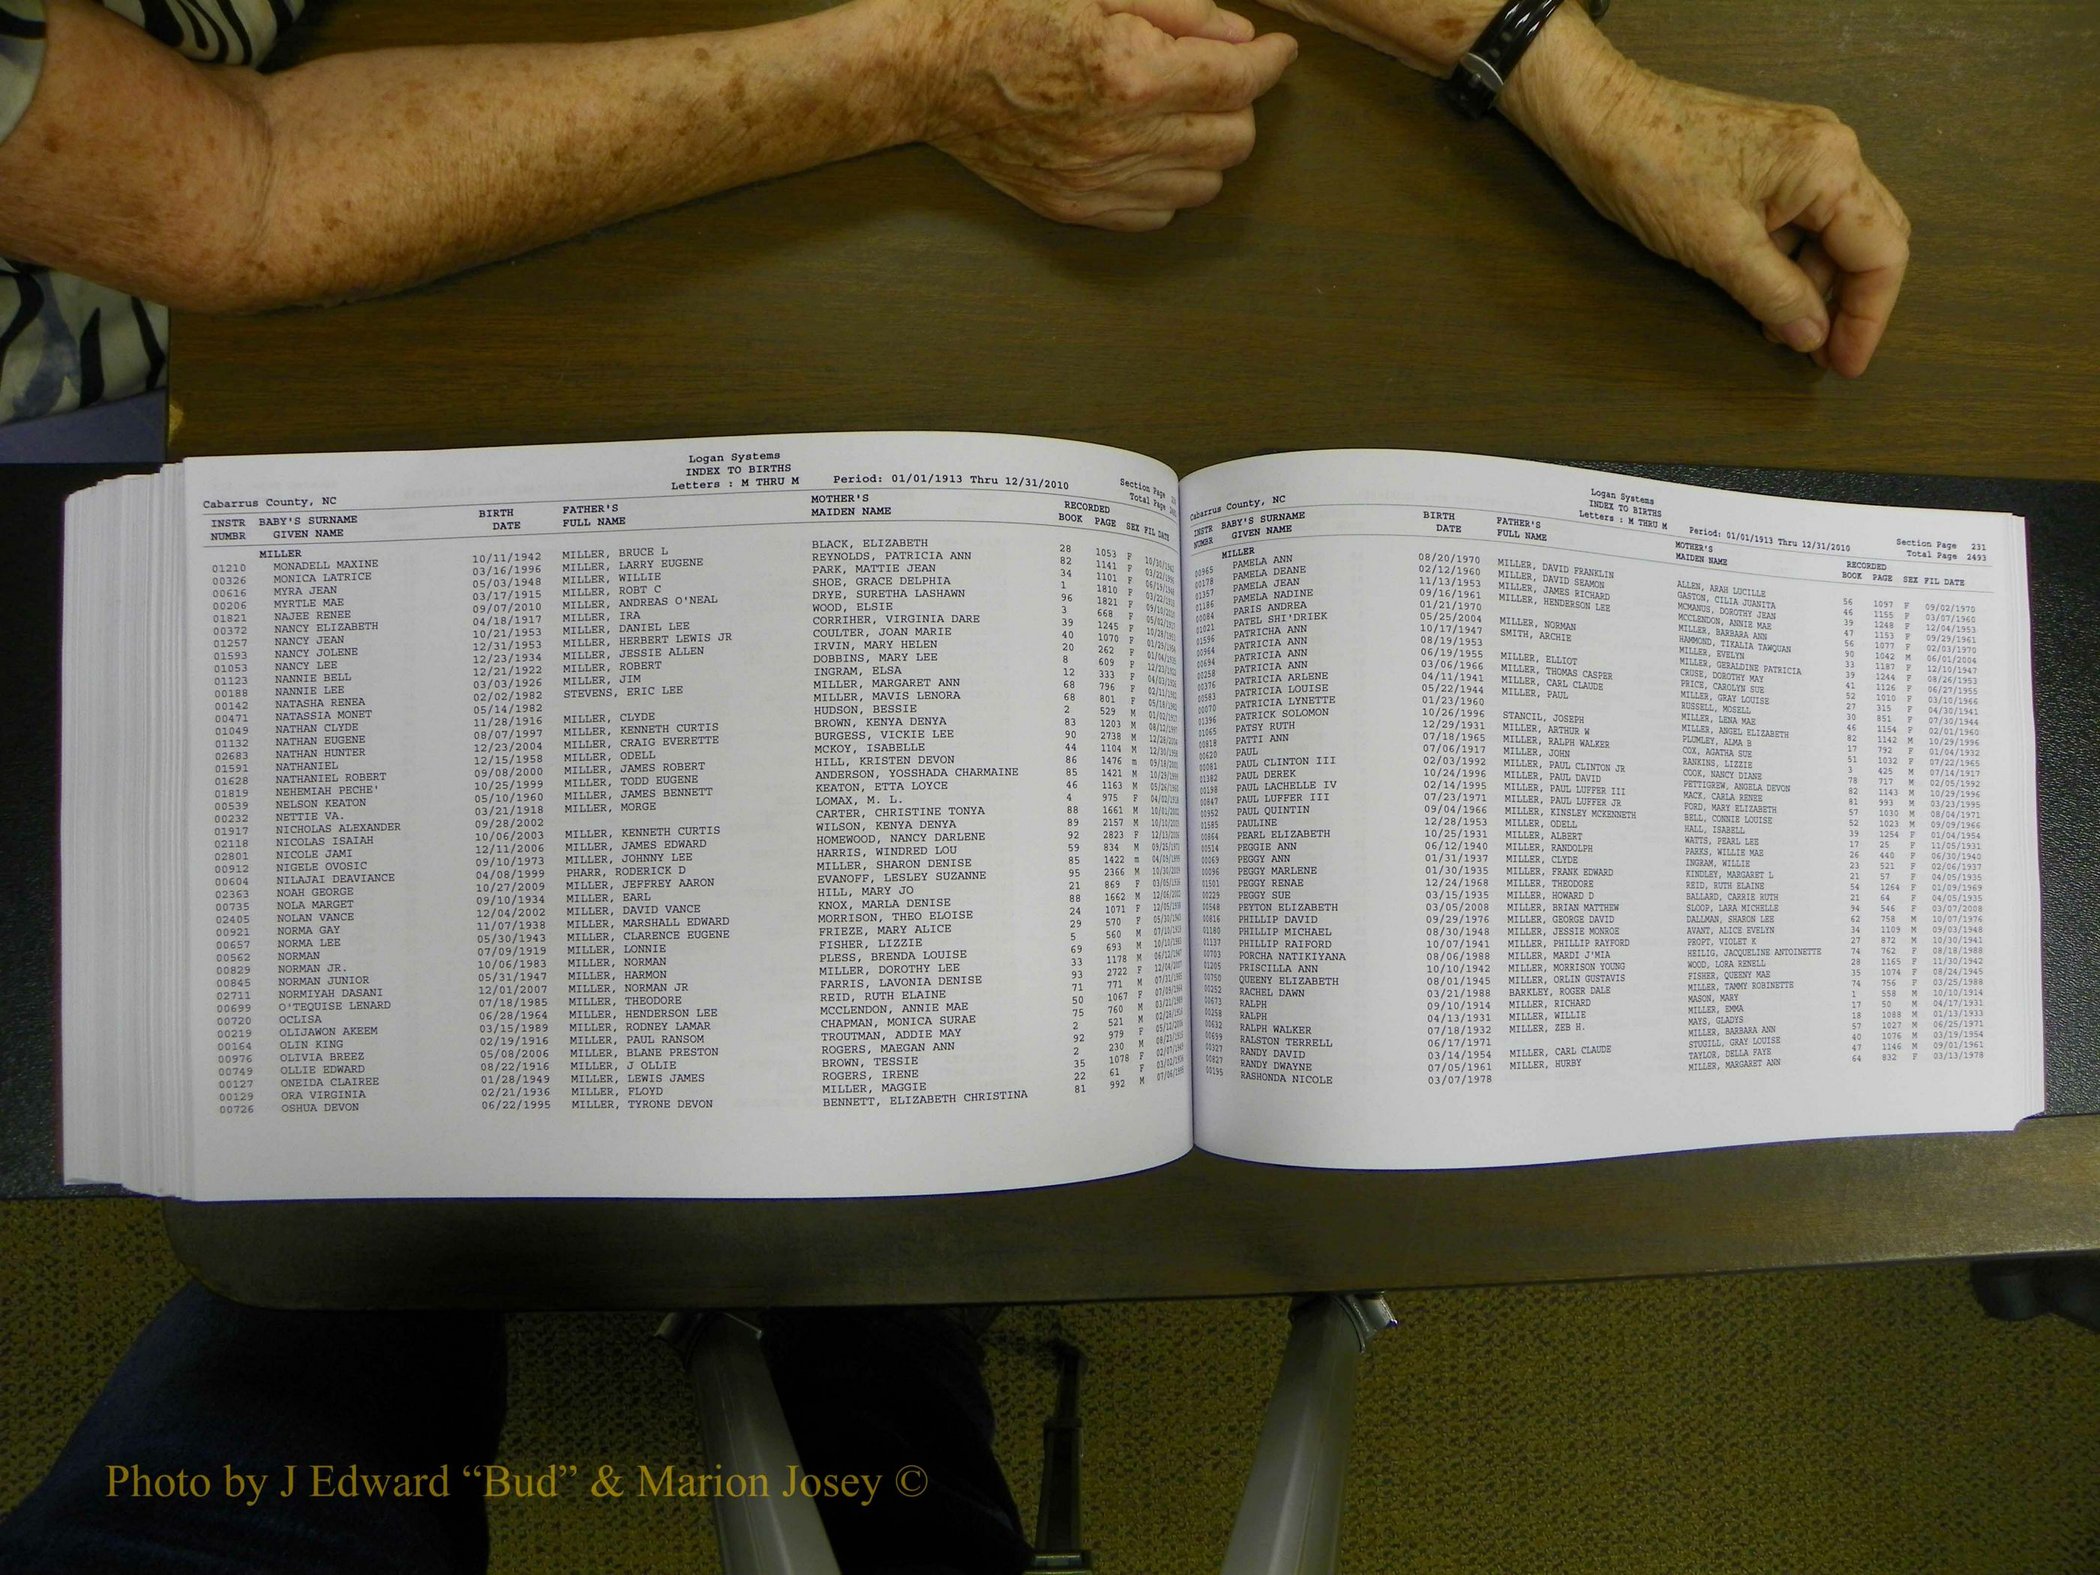 Logan Systems
INDEX TO BIRTHS
Cabarrus County, NC Letters : M THRU M Period: 01/01/1913 Thru 12/31/2010 Section Page Total Page
INSTR NUMBR BABY'S SURNAME GIVEN NAME BIRTH DATE FATHER'S FULL NAME MOTHER'S MAIDEN NAME RECORDED BOOK PAGE SEX FIL DATE
MILLER
01210 MONADELL MAXINE 10/11/1942 MILLER, BRUCE L BLACK, ELIZABETH 28 1053 F 10/30/1942
00326 MONICA LATRICE 03/16/1996 MILLER, LARRY EUGENE REYNOLDS, PATRICIA ANN 82 1141 F 03/22/1996
00616 MYRA JEAN 05/03/1948 MILLER, WILLIE PARK, MATTIE JEAN 34 1101 F 06/19/1948
00206 MYRTLE MAE 03/17/1915 MILLER, ROBT C SHOE, GRACE DELPHIA 1 1810 F
01821 NAJEE RENEE 09/07/2010 MILLER, ANDREAS O'NEAL DRYE, SURETHA LASHAWN 96 1821 F
00372 NANCY ELIZABETH 04/18/1917 MILLER, IRA WOOD, ELSIE 3 668 F
01257 NANCY JEAN 10/21/1953 MILLER, DANIEL LEE CORRIHER, VIRGINIA DARE 39 1245 F
01593 NANCY JOLENE 12/31/1953 MILLER, HERBERT LEWIS JR COULTER, JOAN MARIE 40 1070 F
01053 NANCY LEE 12/23/1934 MILLER, JESSIE ALLEN IRVIN, MARY HELEN 20 262 F
01123 NANNIE BELL 12/21/1922 MILLER, ROBERT DOBBINS, MARY LEE 8 609 F
00188 NANNIE LEE 03/03/1926 MILLER, JIM INGRAM, ELSA 12 333 F
00142 NATASHA RENEA 02/02/1982 STEVENS, ERIC LEE MILLER, MARGARET ANN 68 796 F
00471 NATASSIA MONET 05/14/1982 MILLER, MAVIS LENORA 68 801 F
01049 NATHAN CLYDE 11/28/1916 MILLER, CLYDE HUDSON, BESSIE 2 529 M
01132 NATHAN EUGENE 08/07/1997 MILLER, KENNETH CURTIS BROWN, KENYA DENYA 83 1203 M
02683 NATHAN HUNTER 12/23/2004 MILLER, CRAIG EVERETTE BURGESS, VICKIE LEE 90 2738 M
01591 NATHANIEL 12/15/1958 MILLER, ODELL MCKOY, ISABELLE 44 1104 M
01628 NATHANIEL ROBERT 09/08/2000 MILLER, JAMES ROBERT HILL, KRISTEN DEVON 86 1476 m
01819 NEHEMIAH PECHE' 10/25/1999 MILLER, TODD EUGENE ANDERSON, YOSSHADA CHARMAINE 85 1421 M
00539 NELSON KEATON 05/10/1960 MILLER, JAMES BENNETT KEATON, ETTA LOYCE 46 1163 M
00232 NETTIE VA. 03/21/1918 MILLER, MORGE LOMAX, M. L. 4 975 F
01917 NICHOLAS ALEXANDER 09/28/2002 CARTER, CHRISTINE TONYA 88 1661 M
02118 NICOLAS ISAIAH 10/06/2003 MILLER, KENNETH CURTIS WILSON, KENYA DENYA 89 2157 M
02801 NICOLE JAMI 12/11/2006 MILLER, JAMES EDWARD HOMEWOOD, NANCY DARLENE 92 2823 F
00912 NIGELE OVOSIC 09/10/1973 MILLER, JOHNNY LEE HARRIS, WINDRED LOU 59 834 M
00604 NILAJAI DEAVIANCE 04/08/1999 PHARR, RODERICK D MILLER, SHARON DENISE 85 1422 m
02363 NOAH GEORGE 10/27/2009 MILLER, JEFFREY AARON EVANOFF, LESLEY SUZANNE 95 2366 M
00735 NOLA MARGET 09/10/1934 MILLER, EARL HILL, MARY JO 21 869 F
02405 NOLAN VANCE 12/04/2002 MILLER, DAVID VANCE KNOX, MARLA DENISE 88 1662 M
00921 NORMA GAY 11/07/1938 MILLER, MARSHALL EDWARD MORRISON, THEO ELOISE 24 1071 F
00657 NORMA LEE 05/30/1943 MILLER, CLARENCE EUGENE FRIEZE, MARY ALICE 29 570 F
00562 NORMAN 07/09/1919 MILLER, LONNIE FISHER, LIZZIE 5 560 M
00829 NORMAN JR. 10/06/1983 MILLER, NORMAN PLESS, BRENDA LOUISE 69 693 M
00845 NORMAN JUNIOR 05/31/1947 MILLER, HARMON MILLER, DOROTHY LEE 33 1178 M
02711 NORMIYAH DASANI 12/01/2007 MILLER, NORMAN JR FARRIS, LAVONIA DENISE 93 2722 F
00699 O'TEQUISE LENARD 07/18/1985 MILLER, THEODORE REID, RUTH ELAINE 71 771 M
00720 OCLISA 06/28/1964 MILLER, HENDERSON LEE MCCLENDON, ANNIE MAE 50 1067 F
00219 OLIJAWON AKEEM 03/15/1989 MILLER, RODNEY LAMAR CHAPMAN, MONICA SURAE 75 760 M
00164 OLIN KING 02/19/1916 MILLER, PAUL RANSOM TROUTMAN, ADDIE MAY 2 521 M
00976 OLIVIA BREEZ 05/08/2006 MILLER, BLANE PRESTON ROGERS, MAEGAN ANN 92 979 F
00749 OLLIE EDWARD 08/22/1916 MILLER, J OLLIE BROWN, TESSIE 2 230 M
00127 ONEIDA CLAIREE 01/28/1949 MILLER, LEWIS JAMES ROGERS, IRENE 35 1078 F
00129 ORA VIRGINIA 02/21/1936 MILLER, FLOYD MILLER, MAGGIE 22 61 F
00726 OSHUA DEVON 06/22/1995 MILLER, TYRONE DEVON BENNETT, ELIZABETH CHRISTINA 81 992 M
Logan Systems
INDEX TO BIRTHS
Cabarrus County, NC Letters : M THRU M Period: 01/01/1913 Thru 12/31/2010 Section Page 231 Total Page 2493
INSTR NUMBR BABY'S SURNAME GIVEN NAME BIRTH DATE FATHER'S FULL NAME MOTHER'S MAIDEN NAME RECORDED BOOK PAGE SEX FIL DATE
MILLER
00965 PAMELA ANN 08/20/1970 MILLER, DAVID FRANKLIN ALLEN, ARAH LUCILLE 56 1097 F 09/02/1970
00178 PAMELA DEANE 02/12/1960 MILLER, DAVID SEAMON GASTON, CILIA JUANITA 46 1155 F 03/07/1960
01357 PAMELA JEAN 11/13/1953 MILLER, JAMES RICHARD MCMANUS, DOROTHY JEAN 39 1248 F 12/04/1953
01186 PAMELA NADINE 09/16/1961 MILLER, HENDERSON LEE MCCLENDON, ANNIE MAE 47 1153 F 09/29/1961
00084 PARIS ANDREA 01/21/1970 MILLER, BARBARA ANN 56 1077 F 02/03/1970
01021 PATEL SHI'DRIEK 05/25/2004 MILLER, NORMAN HAMMOND, TIKALIA TAWQUAN 90 1042 M 06/01/2004
01596 PATRICHA ANN 10/17/1947 SMITH, ARCHIE MILLER, EVELYN 33 1187 F 12/10/1947
00964 PATRICIA ANN 08/19/1953 MILLER, GERALDINE PATRICIA 39 1244 F 08/26/1953
00694 PATRICIA ANN 06/19/1955 MILLER, ELLIOT CRUSE, DOROTHY MAY 41 1126 F 06/27/1955
00258 PATRICIA ANN 03/06/1966 MILLER, THOMAS CASPER PRICE, CAROLYN SUE 52 1010 F 03/10/1966
00376 PATRICIA ARLENE 04/11/1941 MILLER, CARL CLAUDE MILLER, GRAY LOUISE 27 315 F 04/30/1941
00583 PATRICIA LOUISE 05/22/1944 MILLER, PAUL RUSSELL, MOSELL 30 851 F 07/30/1944
00070 PATRICIA LYNETTE 01/23/1960 MILLER, LENA MAE 46 1154 F 02/01/1960
01396 PATRICK SOLOMON 10/26/1996 STANCIL, JOSEPH MILLER, ANGEL ELIZABETH 82 1142 M 10/29/1996
01065 PATSY RUTH 12/29/1931 MILLER, ARTHUR W PLUMLEY, ALMA B 17 792 F 01/04/1932
00818 PATTI ANN 07/18/1965 MILLER, RALPH WALKER COX, AGATHA SUE 51 1032 F 07/22/1965
00620 PAUL 07/06/1917 MILLER, JOHN RANKINS, LIZZIE 3 425 M 07/14/1917
00081 PAUL CLINTON III 02/03/1992 MILLER, PAUL CLINTON JR COOK, NANCY DIANE 78 717 M 02/05/1992
01382 PAUL DEREK 10/24/1996 MILLER, PAUL DAVID PETTIGREW, ANGELA DEVON 82 1143 M 10/29/1996
00198 PAUL LACHELLE IV 02/14/1995 MILLER, PAUL LUFFER III MACK, CARLA RENEE 81 993 M 03/23/1995
00847 PAUL LUFFER III 07/23/1971 MILLER, PAUL LUFFER JR FORD, MARY ELIZABETH 57 1030 M 08/04/1971
00952 PAUL QUINTIN 09/04/1966 MILLER, KINSLEY MCKENNETH BELL, CONNIE LOUISE 52 1023 M 09/09/1966
01585 PAULINE 12/28/1953 MILLER, ODELL HALL, ISABELL 39 1254 F 01/04/1954
00864 PEARL ELIZABETH 10/25/1931 MILLER, ALBERT WATTS, PEARL LEE 17 25 F 11/05/1931
00514 PEGGIE ANN 06/12/1940 MILLER, RANDOLPH PARKS, WILLIE MAE 26 440 F 06/30/1940
00069 PEGGY ANN 01/31/1937 MILLER, CLYDE INGRAM, WILLIE 23 521 F 02/06/1937
00096 PEGGY MARLENE 01/30/1935 MILLER, FRANK EDWARD KINDLEY, MARGARET L 21 57 F 04/05/1935
01501 PEGGY RENAE 12/24/1968 MILLER, THEODORE REID, RUTH ELAINE 54 1264 F 01/09/1969
00229 PEGGY SUE 03/15/1935 MILLER, HOWARD D BALLARD, CARRIE RUTH 21 64 F 04/05/1935
00548 PEYTON ELIZABETH 03/05/2008 MILLER, BRIAN MATTHEW SLOOP, LARA MICHELLE 94 546 F 03/07/2008
00816 PHILLIP DAVID 09/29/1976 MILLER, GEORGE DAVID DALLMAN, SHARON LEE 62 758 M 10/07/1976
01180 PHILLIP MICHAEL 08/30/1948 MILLER, JESSIE MONROE AVANT, ALICE EVELYN 34 1109 M 09/03/1948
01137 PHILLIP RAIFORD 10/07/1941 MILLER, PHILLIP RAYFORD PROPT, VIOLET K 27 872 M 10/30/1941
00703 PORCHA NATIKIYANA 08/06/1988 MILLER, MARDI J'MIA HEILIG, JACQUELINE ANTOINETTE 74 762 F 08/18/1988
01205 PRISCILLA ANN 10/10/1942 MILLER, MORRISON YOUNG WOOD, LORA RENELL 28 1165 F 11/30/1942
00750 QUEENY ELIZABETH 08/01/1945 MILLER, ORLIN GUSTAVIS FISHER, QUEENY MAE 35 1074 F 08/24/1945
00252 RACHEL DAWN 03/21/1988 BARKLEY, ROGER DALE MILLER, TAMMY ROBINETTE 74 756 F 03/25/1988
00673 RALPH 09/10/1914 MILLER, RICHARD MASON, MARY 1 558 M 10/10/1914
00258 RALPH 04/13/1931 MILLER, WILLIE MILLER, EMMA 17 50 M 04/17/1931
00632 RALPH WALKER 07/18/1932 MILLER, ZEB H. MAYS, GLADYS 18 1088 M 01/13/1933
00699 RALSTON TERRELL 06/17/1971 MILLER, BARBARA ANN 57 1027 M 06/25/1971
00327 RANDY DAVID 03/14/1954 MILLER, CARL CLAUDE STUGILL, GRAY LOUISE 40 1076 M 03/19/1954
00827 RANDY DWAYNE 07/05/1961 MILLER, HURBY TAYLOR, DELLA FAYE 47 1146 M 09/01/1961
00195 RASHONDA NICOLE 03/07/1978 MILLER, MARGARET ANN 64 832 F 03/13/1978
Photo by J Edward “Bud” & Marion Josey ©